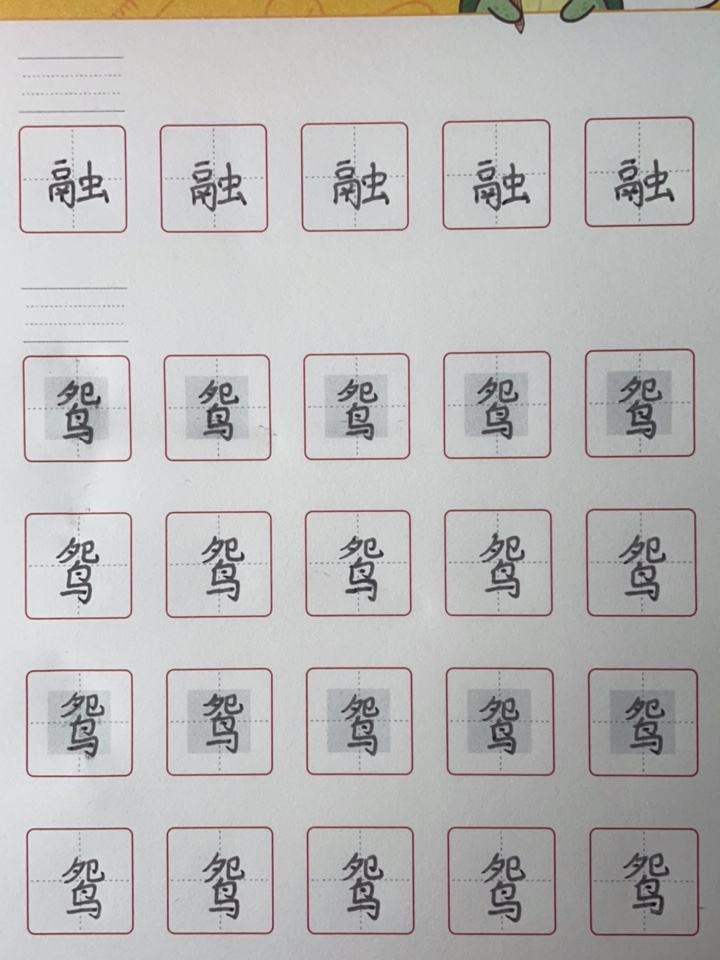 融 融 融 融 融
鸳 鸳 鸳 鸳 鸳
鸳 鸳 鸳 鸳 鸳
鸳 鸳 鸳 鸳 鸳
鸳 鸳 鸳 鸳 鸳